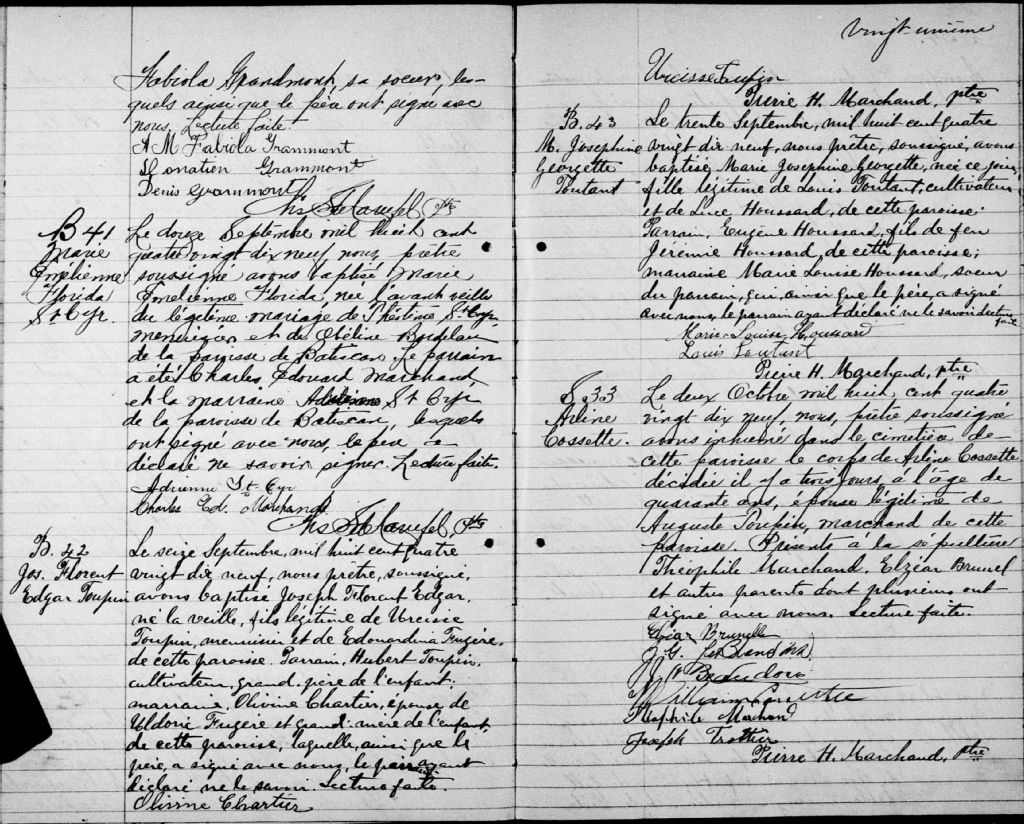 Fabiola Grandmont, sa soeur, les-
quels ainsi que le père ont signé avec
nous. Lecture faite.
A M Fabiola Grammont
Donatien Grammont
Denis Grammont
Ptre
B 41
Marie
Emélienne
Florida
St Cyr.
Le douze Septembre mil huit cent
quatre vingt dix neuf, nous, prêtre
soussigné avons baptisé Marie
Emélienne Florida, née l'avant veille
du légitime mariage de St Cyr,
menuisier et de
de la paroisse de Batiscan. Le parrain
a été Charles, Edouard Marchand,
et la marraine Adrienne St Cyr
de la paroisse de Batiscan, lesquels
ont signé avec nous, le père a
déclaré ne savoir signer. Lecture faite.
Adrienne St Cyr
Charles Ed. Marchand
Ptre
B. 42
Jos. Florent
Edgar Toupin
Le seize Septembre, mil huit cent quatre
vingt dix neuf, nous prêtre, soussigné,
avons baptisé Joseph Florent Edgar,
né la veille, fils légitime de Urcisse
Toupin, menuisier et de Edouardina Fugère,
de cette paroisse. Parrain, Hubert Toupin,
cultivateur, grand-père de l'enfant.
marraine, Olivine Chartier, épouse de
Uldoric Fugère et grand-mère de l'enfant,
de cette paroisse, laquelle, ainsi que le
père, a signé avec nous, le parrain ayant
déclaré ne le savoir. Lecture faite.
Olivine Chartier
Vingt-unième
Urcisse Toupin
Pierre H. Marchand, ptre
B. 43
M. Josephine
Georgette
Toutant
Le trente Septembre, mil huit cent quatre
vingt dix neuf, nous prêtre, soussigné, avons
baptisé Marie Josephine Georgette, née ce jour,
fille légitime de Louis Toutant, cultivateur
et de Luce Houssard, de cette paroisse.
Parrain, Eugène Houssard, fils de feu
Jérémie Houssard, de cette paroisse;
marraine Marie Louise Houssard, soeur
du parrain, qui, ainsi que le père, a signé
avec nous, le parrain ayant déclaré ne le savoir. Lecture
faite
Marie-Louise Houssard
Louis Toutant
Pierre H. Marchand, ptre
S. 33
Arline
Cossette.
Le deux Octbre mil huit cent quatre
vingt dix neuf, nous, prêtre soussigné
avons inhumé dans le cimetière de
cette paroisse le corps de Arline Cossette
décédée il y a trois jours, à l'âge de
quarante ans, épouse légitime de
Auguste Toupin, marchand de cette
paroisse. Présents à la sépulture
Théophile Marchand, Elzéar Brunel
et autres parents dont plusieurs ont
signé avec nous. Lecture faite.
Brunelle
J. G. LeBlanc
Beaudoin
William
Théophile Marchand
Joseph Trottier
Pierre H. Marchand, ptre